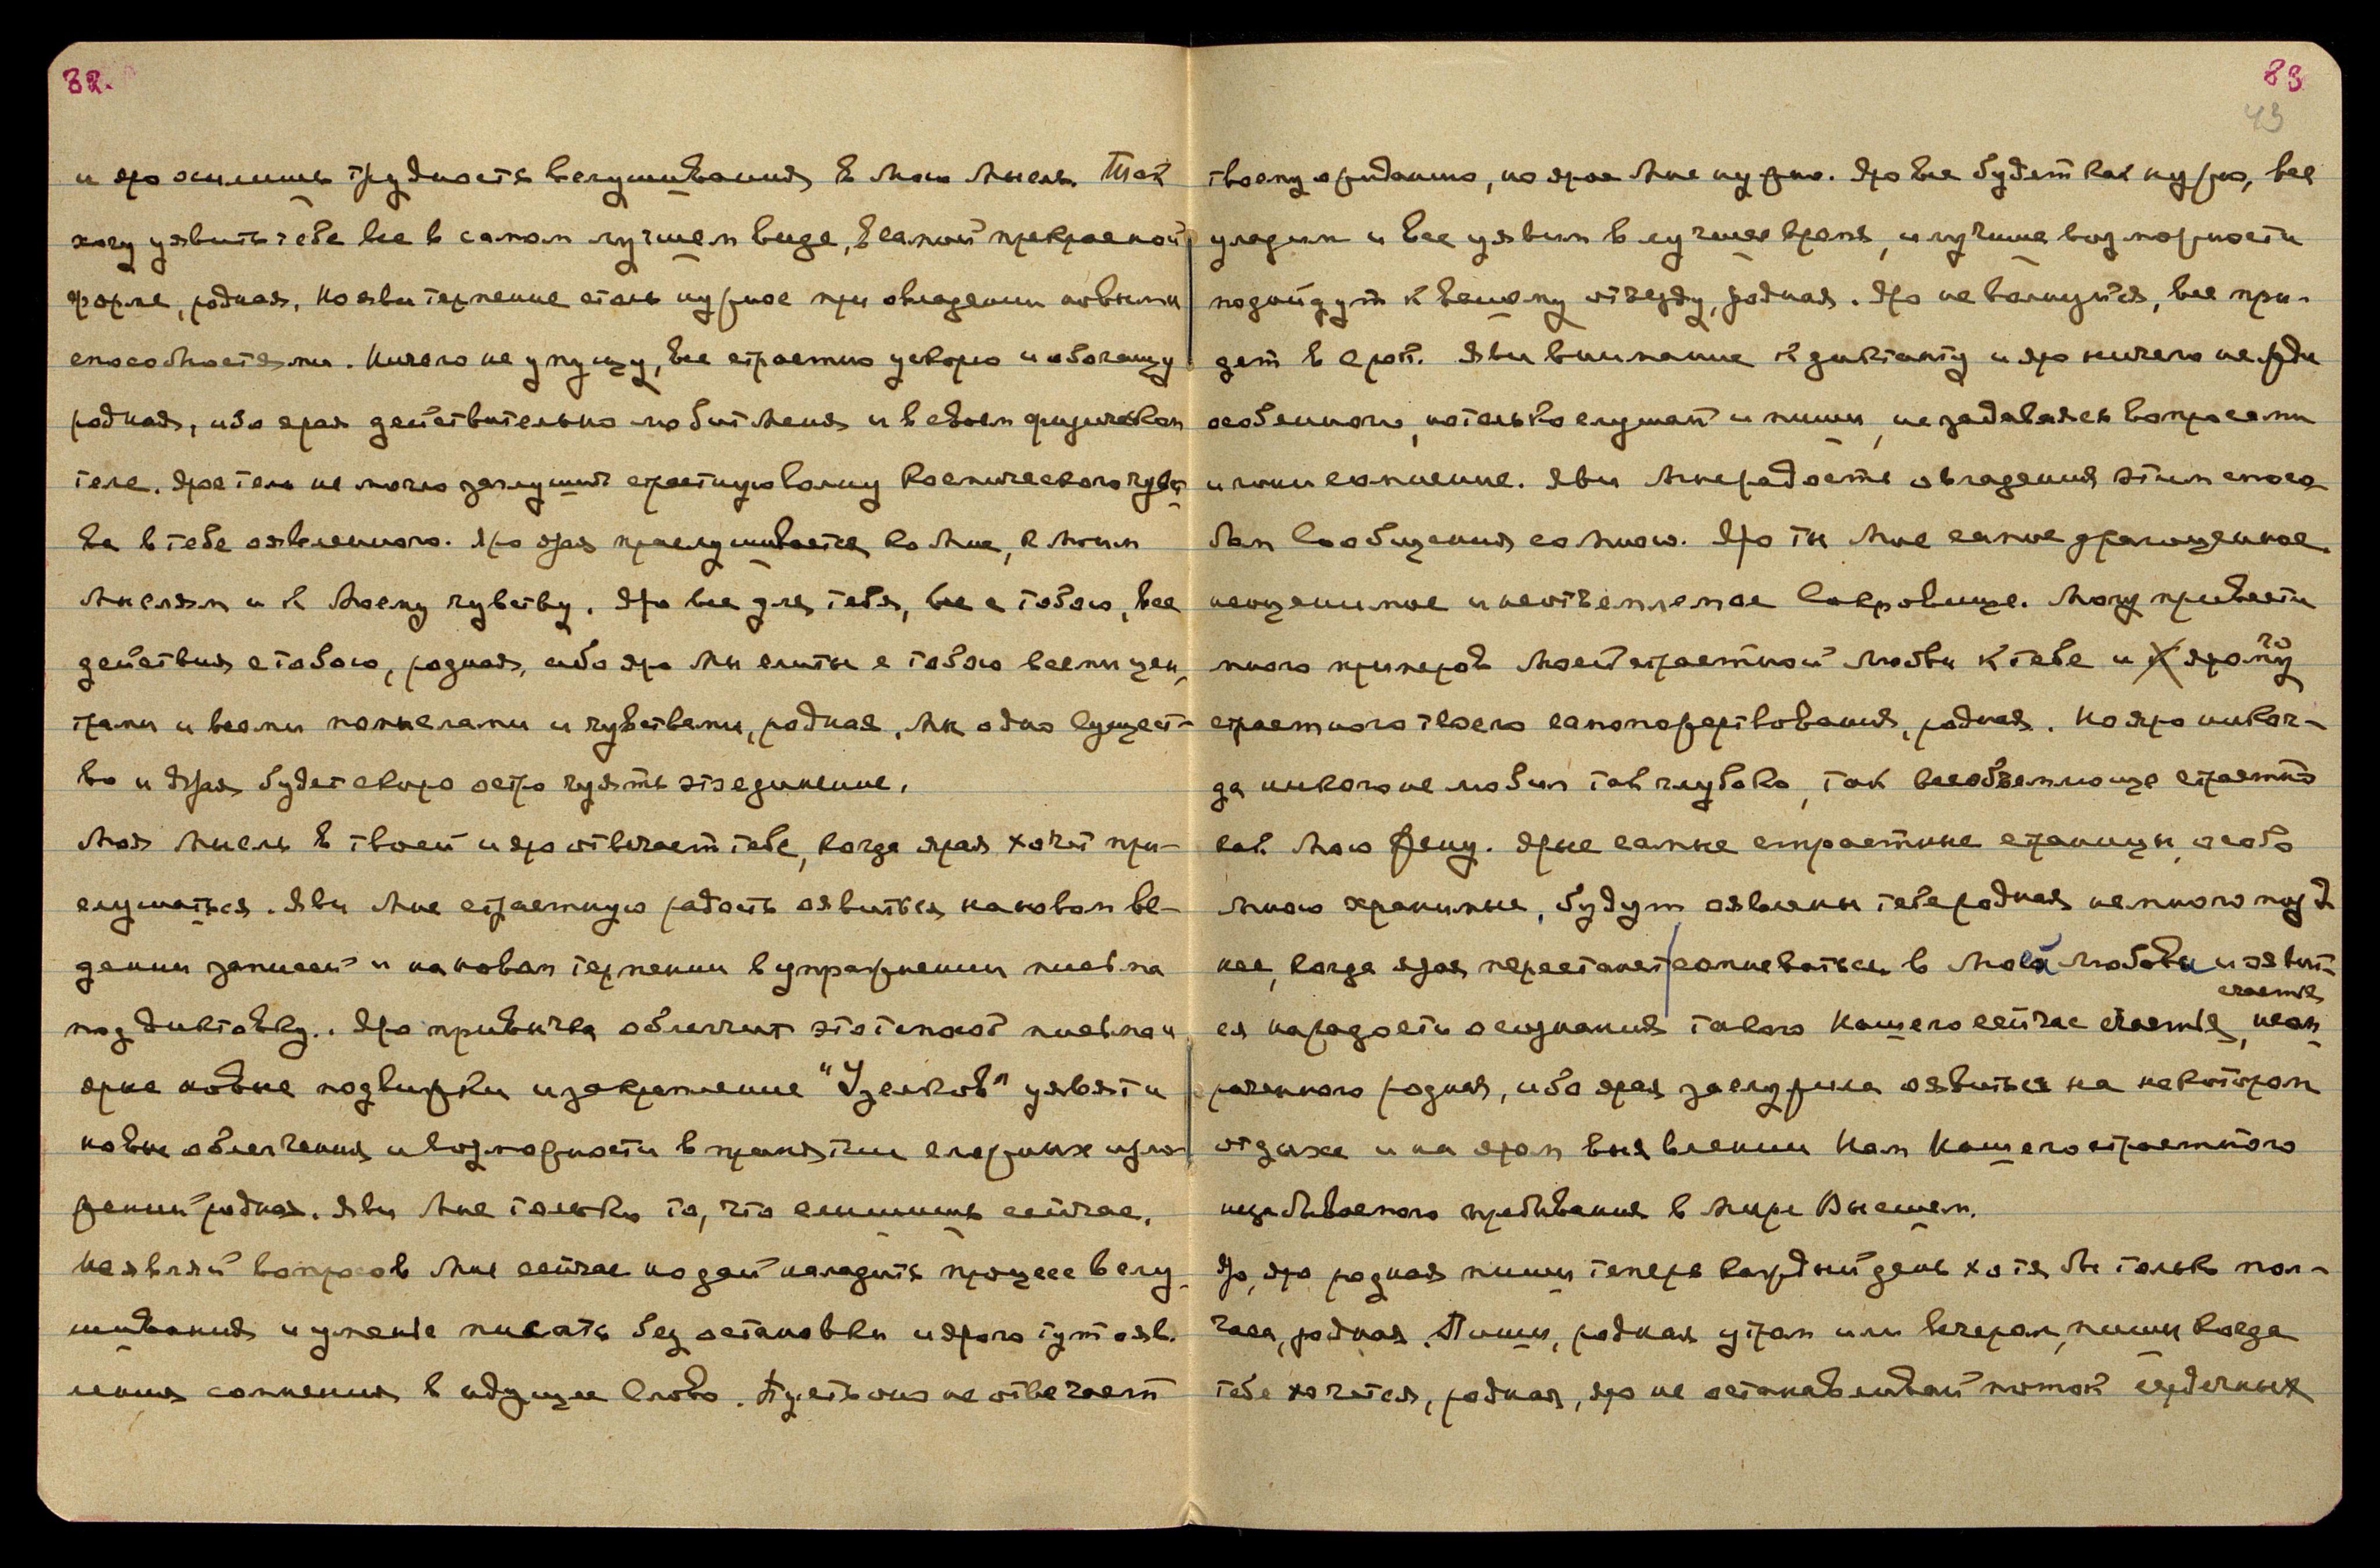 82.
и яро осилишь трудность вслушивания в Мою Мысль. Так
хочу уявить тебе все в самом лучшем виде, в самой прекрасной
форме, родная. Но яви терпение столь нужное при овладении новыми
способностями. Ничего не упущу, все страстно ускорю и обогащу
родная, ибо ярая действительно любит Меня и в своем физическом
теле. Ярое тело не могло заглушить страстную волну Космического чувст-
ва в тебе оявленного. Яро ярая прислушивается ко Мне, к Моим
Мыслям и к Моему чувству. Яро все для тебя, все с тобою, все
действия с тобою, родная, ибо яро Мы слиты с тобою всеми цен-
трами и всеми помыслами и чувствами, родная. Мы одно Сущест-
во и ярая будет скоро остро чуять это единение.
Моя Мысль в твоей и яро отвечает тебе, когда ярая хочет при-
слушаться. Яви Мне страстную радость оявиться на новом ве-
дении записей и на новом терпении в упражнении письма
под диктовку. Яро привычка облегчит этот способ письма и
ярые новые подвижки и закрепление "Узелков" уявят и
новые облегчения и возможности в принятии сложных изло-
жений родная. Яви Мне только то, что слышишь сейчас.
Не являй вопросов Мне сейчас но дай наладить процесс вслу-
шивания и умение писать без остановки и ярого тут явл.
ления сомнения в идущее Слово. Пусть оно не отвечает
83
43
твоему ожиданию, но ярое Мне нужно. Яро все будет как нужно, все
уладим и все уявим в лучшее время, и лучшие возможности
подойдут к вашему отъезду, родная. Яро не волнуйся, все при-
дет в срок. Яви внимание к диктанту и яро ничего не жди
особенного, но только слушай и пиши, не задаваясь вопросами
и гони сомнение. Яви Мне радость овладения этим спосо-
бом Сообщения со Мною. Яро ты Мне самое драгоценное,
неоценимое и неотъемлемое Сокровище. Могу привести
много примеров Моей страстной Любви к тебе и ярого
страстного твоего самопожертвования, родная. Но яро никог-
да никого не любил так глубоко, так всеобъемлюще страстно
как Мою Жену. Ярые самые страстные страницы, особо
Мною хранимые, будут оявлены тебе родная немного позд-
нее, когда ярая перестанет сомневаться в Моей Любви и оявит-
счастья
ся на радости осознания такого Нашего сейчас счастья, неом-
раченного родная, ибо ярая заслужила оявиться на некотором
отдыхе и на яром выявлении Нам Нашего страстного
незабываемого пребывания в Мире Высшем.
Яро, яро родная пиши теперь каждый день хотя бы только пол-
часа, родная. Пиши, родная утром или вечером, пиши когда
тебе хочется, родная, яро не останавливай поток сердечных